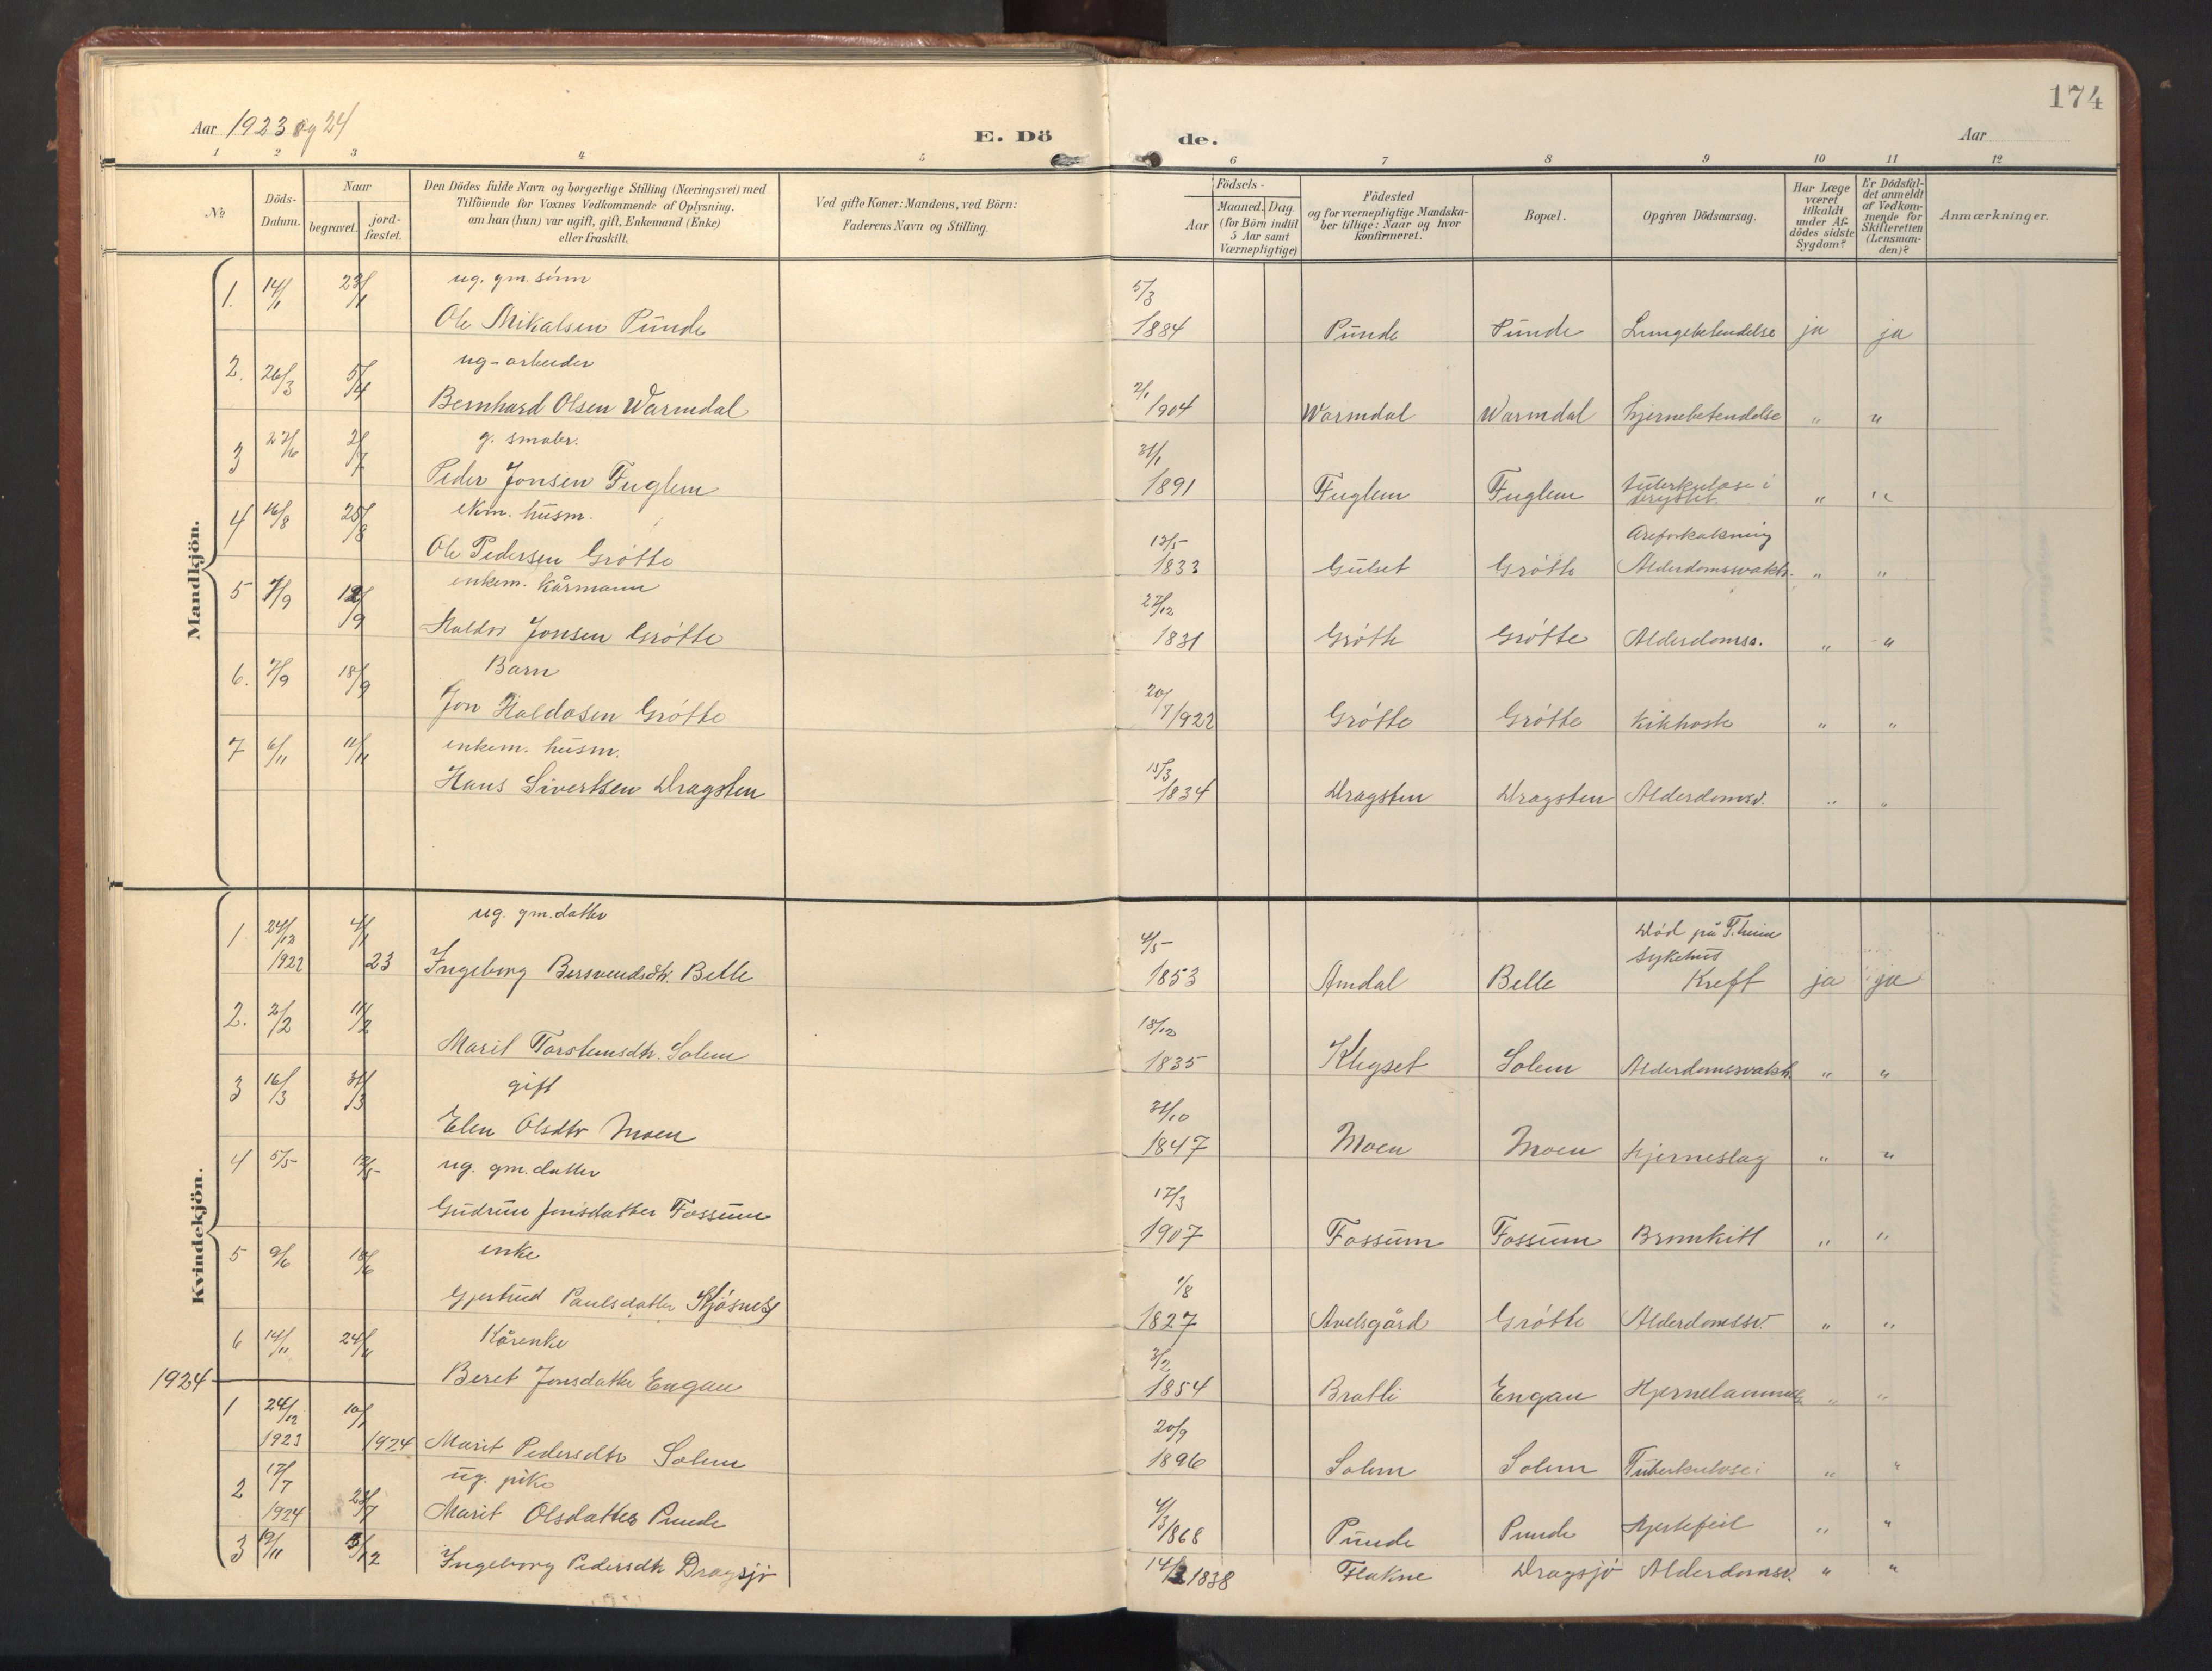 174
Aar 1923 og 24
E. Dö de.
Aar
1 2 3 4 5 6 7 8 9 10 11 12
No
Döds-Datum.
Naar
begravet.
jord-fæstet.
Den Dödes fulde Navn og borgerlige Stilling (Næringsvei) med
Tilföiende for Voxnes Vedkommende af Oplysning,
om han (hun) var ugift, gift, Enkemand (Enke)
eller fraskilt.
Ved gifte Koner: Mandens, ved Börn:
Faderens Navn og Stilling.
Födsels-
Aar
Maaned. Dag.
(for Börn indtil
5 Aar samt
Værnepligtige)
Födested
og for værnepligtige Mandska-
ber tillige: Naar og hvor
konfirmeret.
Bopæl.
Opgiven Dödsaarsag.
Har Læge
været
tilkaldt
under Af-
dödes sidste
Sygdom?
Er Dödsfal-
det anmeldt
af Vedkom-
mende for
Skifteretten
(Lensman-
den)?
Anmærkninger.
Mandkjön.
1. 14/1 23/1 ug. gm. sönn 5/3
Ole Mikalsen Punde 1884 Punde Punde Lungebetendelse ja ja
2. 26/3 5/4 ug-arbeider 2/1
Bernhard Olsen Warmdal 1904 Warmdal Warmdal hjernebetendelse " "
3 27/6 2/7 g. smabr. 31/1
Peder Jonsen Fuglem 1891 Fuglem Fuglem tuberkulose i brystet " "
4 16/8 25/8 ekm. husm. 13/5 Areforkalkning
Ole Pedersen Grötte 1833 Gulset Grötte Alderdomssvakh. " "
5 7/9 12/9 enkem. kårmann 27/12
Haldor Jonsen Grötte 1831 Grötte Grötte Alderdomss. " "
6. 7/9 18/9 Barn 20/7
Jon Haldosen Grötte 1922 Grötte Grötte Kikhoste " "
7 6/11 11/11 enkem. husm. 15/3
Hans Sivertsen Dragsten 1834 Dragsten Dragsten Alderdomsv. " "
Kvindekjön.
1 24/12 4/1 ug. gm. datter 4/5 Död på T.heim
1922 23 Ingeborg Bersvendsdtr. Belle 1853 Amdal Belle sykehus Kreft ja ja
2. 2/2 11/2 18/12
Marit Torsteinsdtr. Solem 1835 Klegset Solem Alderdomssvakh. " "
3 16/3 31/3 gift 31/10
Elen Olsdtr Moen 1847 Moen Moen Hjerneslag " "
4 5/5 12/5 ug. gm. datter 17/3
Gudrun Jonsdatter Fossum 1907 Fossum Fossum Bronkitt " "
5 9/6 18/6 enke 1/8
Gjertrud Paulsdatter Kjösnes 1827 Avelsgård Grötte Alderdomssv. " "
6 14/11 24/11 Kårenke 3/2
Beret Jonsdatter Engan 1854 Bratli Engan " "
1924
1 24/12 10/1 20/9
1923 1924 Marit Pedersdtr Solem 1896 Solem Solem Tuberkulose " "
2 17/7 23/7 ug. pike 4/3
1924 Marit Olsdatter Punde 1868 Punde Punde Hjertefeil " "
3 19/11 3/12 Ingeborg Pedersdtr Dragsjö 14/3 1838 Flakne Dragsjö Alderdomsv. " "